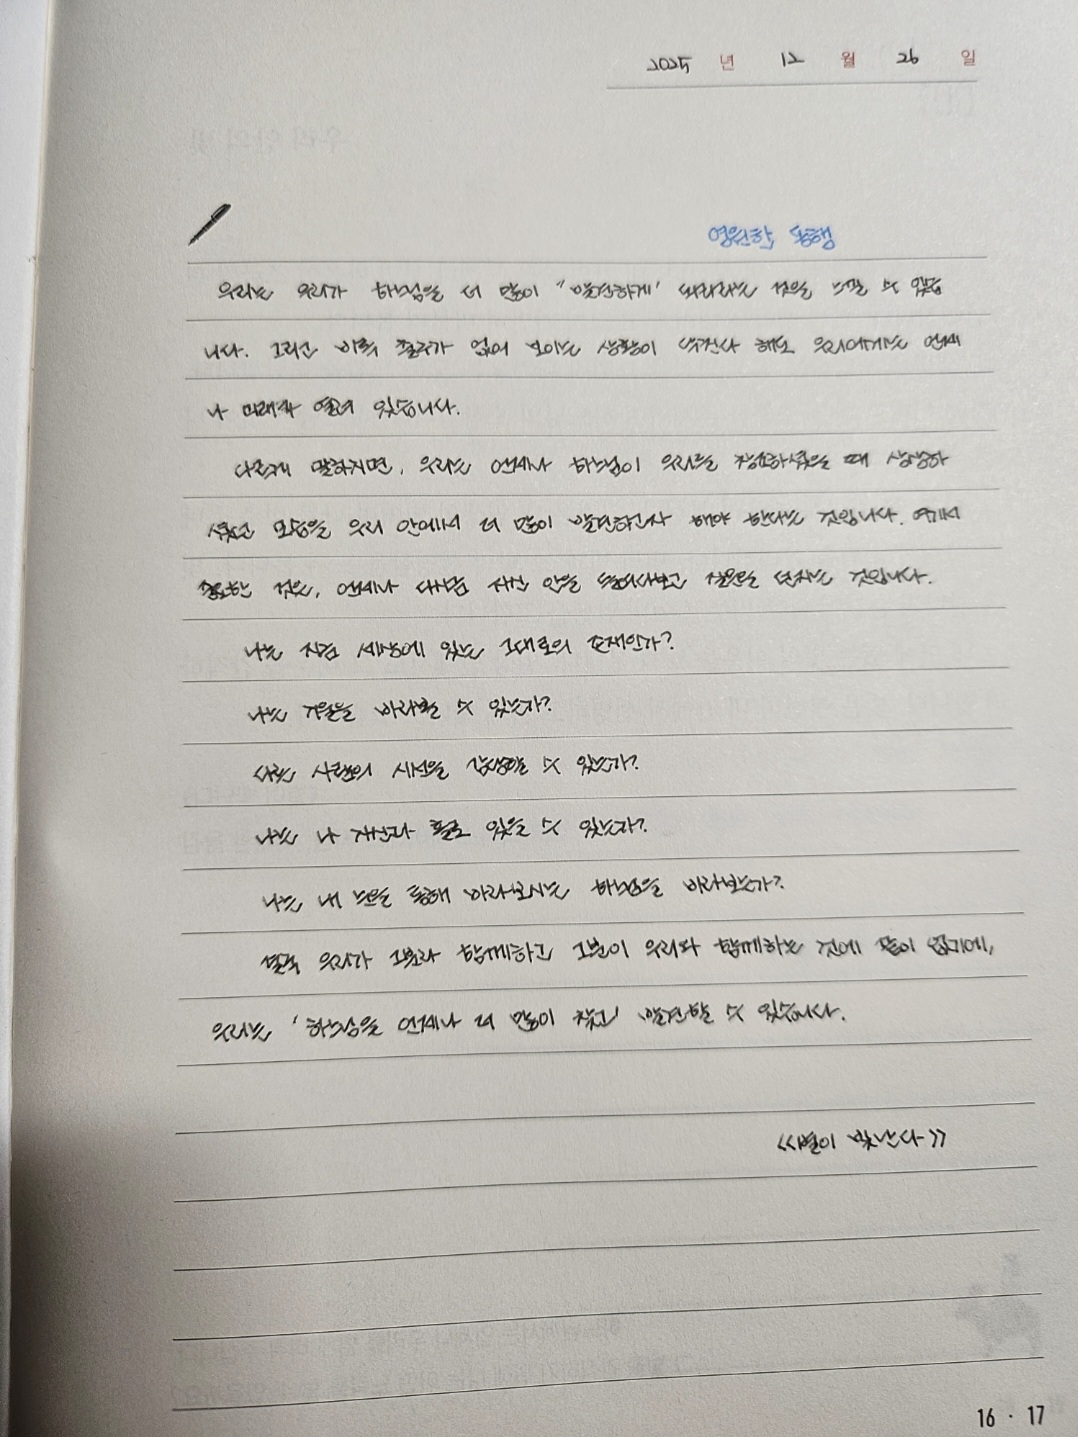 2025 년 12 월 26 일
영원한 동행
우리는 우리가 하느님을 더 많이 "발견하게' 되리라는 것을 느낄 수 있습
니다. 그리고 비록 출구가 없어 보이는 상황이 닥친다 해도 우리에게는 언제
나 미래가 열려 있습니다.
다르게 말하자면, 우리는 언제나 하느님이 우리를 창조하셨을 때 상상하
셨던 모습을 우리 안에서 더 많이 발견하고자 해야 한다는 것입니다. 여기서
중요한 것은, 언제나 대림 자신 안을 들여다보고 질문을 던지는 것입니다.
나는 지금 세상에 있는 그대로의 존재인가?
나는 거울을 바라볼 수 있는가?
다른 사람의 시선을 감당할 수 있는가?
나는 나 자신과 홀로 있을 수 있는가?
나는 내 눈을 통해 바라보시는 하느님을 바라보는가?
결국 우리가 그분과 함께하고 그분이 우리와 함께하는 것에 끝이 없기에,
우리는 '하느님을 언제나 더 많이 찾고' 발견할 수 있습니다.
<<별이 빛난다>>
16 · 17